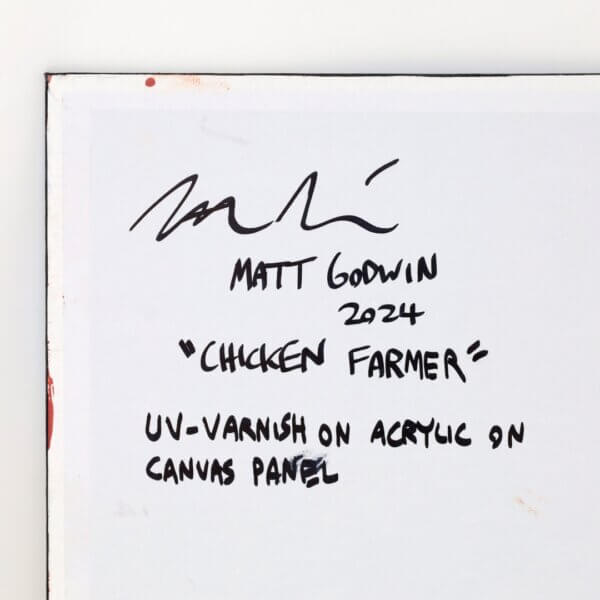 MATT GODWIN
2024
"CHICKEN FARMER"
UV-VARNISH ON ACRYLIC ON
CANVAS PANEL